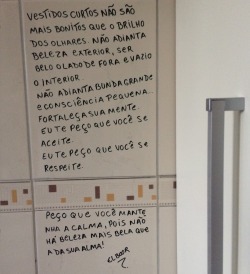 VESTIDOS CURTOS NÃO SÃO
MAIS BONITOS QUE O BRILHO
DOS OLHARES. NÃO ADIANTA
BELEZA EXTERIOR, SER
BELO O LADO DE FORA E VAZIO
O INTERIOR...
NÃO ADIANTA BUNDA GRANDE
E CONSCIÊNCIA PEQUENA...
FORTALEÇA SUA MENTE.
EU TE PEÇO QUE VOCÊ SE
ACEITE.
EU TE PEÇO QUE VOCÊ SE
RESPEITE.
PEÇO QUE VOCÊ MANTE
NHA A CALMA, POIS NÃO
HÁ BELEZA MAIS BELA QUE
A DA SUA ALMA!